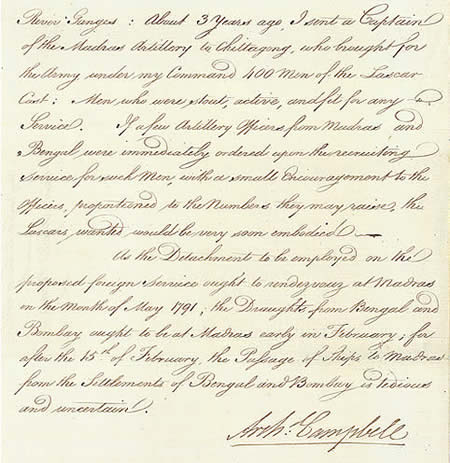 River Ganges : About 3 Years ago, I sent a Captain
of the Madras Artillery to Chittagong, who brought for
the Army under my Command 400 Men of the Lascar
Cast : Men who were stout, active, and fit for any
Service. If a few Artillery Officers from Madras, and
Bengal, were immediately ordered upon the recruiting
Service for such Men, with a small Encouragement to the
Officers, proportioned to the Numbers they may raise, the
Lascars, wanted would be very soon embodied —
As the Detachment to be employed on the
proposed foreign Service ought to rendezvouz at Madras
in the Month of May 1791, the Draughts from Bengal and
Bombay ought to be at Madras early in February; for
after the 15th of February, the Passage of Ships to Madras
from the Settlements of Bengal and Bombay is tedious
and uncertain.
Archd. Campbell